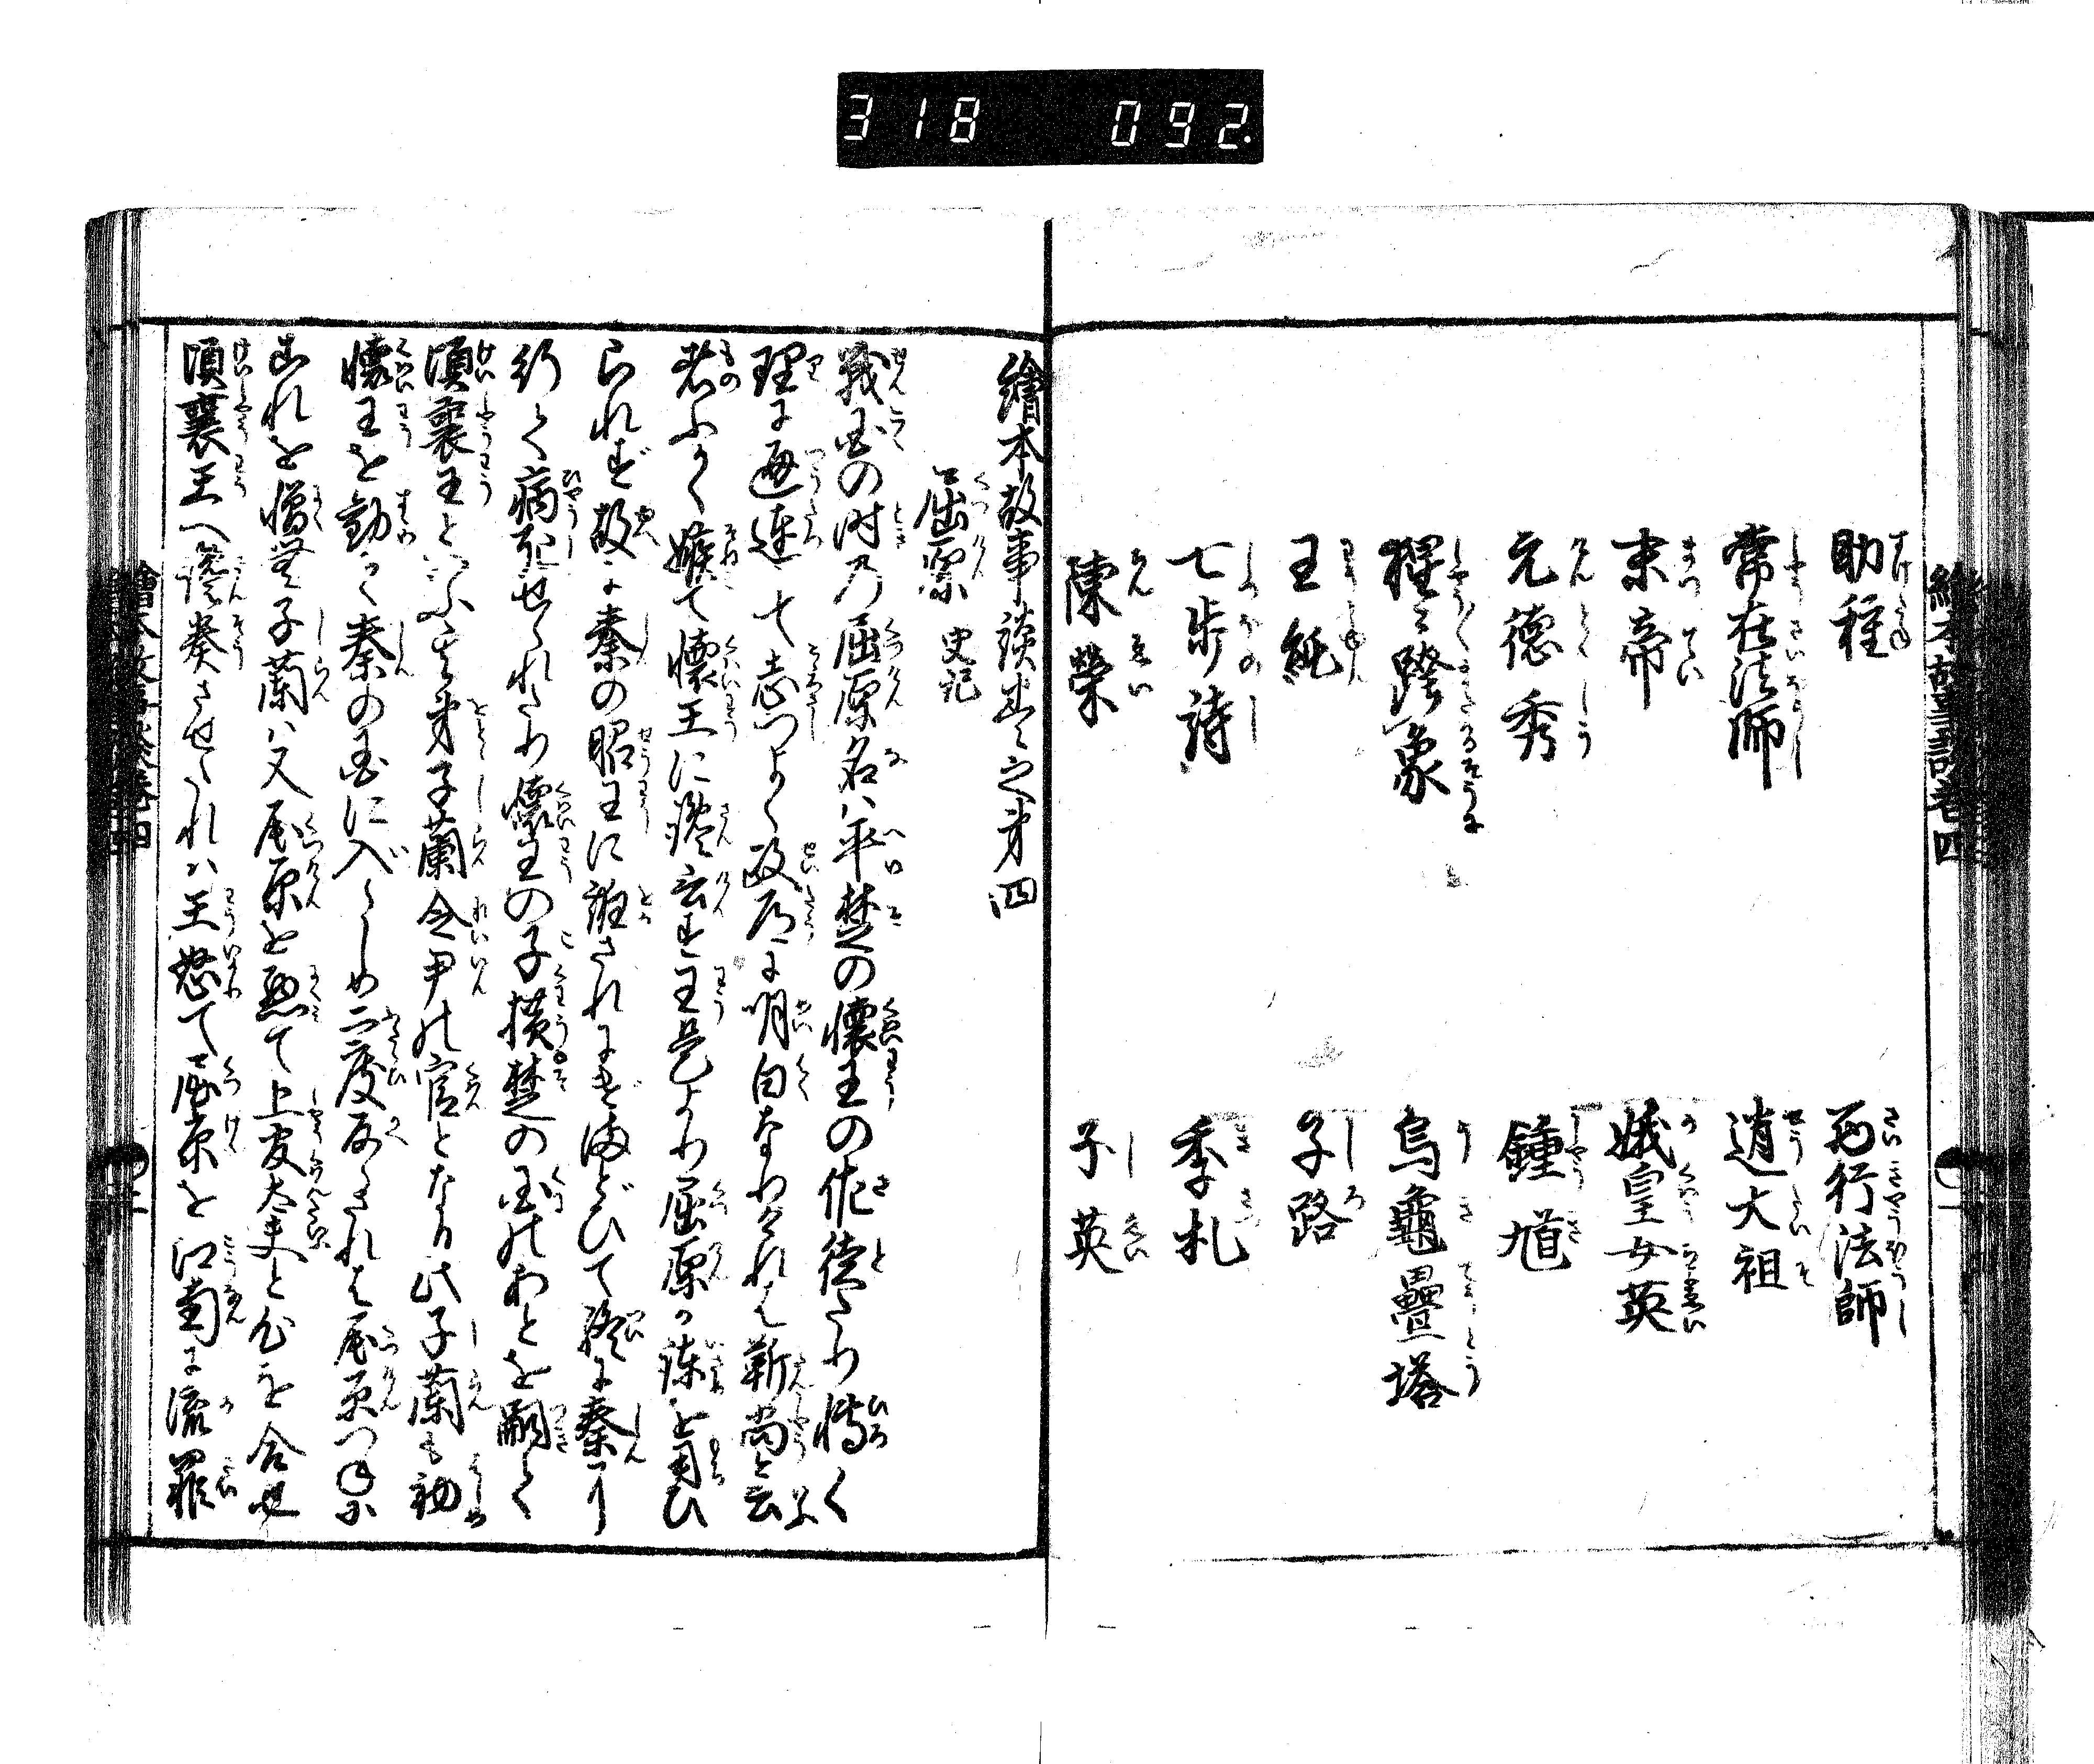 318 092.
繪本故事談卷四
助種
常在法師
末帝
元德秀
猩々跨象
王純
七歩詩
陳榮
西行法師
逍大祖
娥皇女英
鍾馗
烏龜疊塔
子路
季札
子英
繪本故事談巻之第四
屈原 史記
戦国の时乃屈原名ハ平楚の懐王の佐徒たり博く
理に通達して志つよく政道に明白なりけれハ靳尚と云
者ふかく嫉て懐王に讒言す王是より屈原か諫を用ひ
られず故に秦の昭王に誑されにき満どひて終に秦に
行て病死せられたり懐王の子横楚の国のあとを嗣て
頃襄王といふ其弟子蘭令尹の官となり此子蘭も初
懐王を勧めて秦の国に入らしめ二度反らされハ屈原つねに
これを憎む子蘭ハ又屈原を悪て上官大夫と心を合せ
頃襄王へ讒奏させたれハ王怒て屈原を江南に流罪